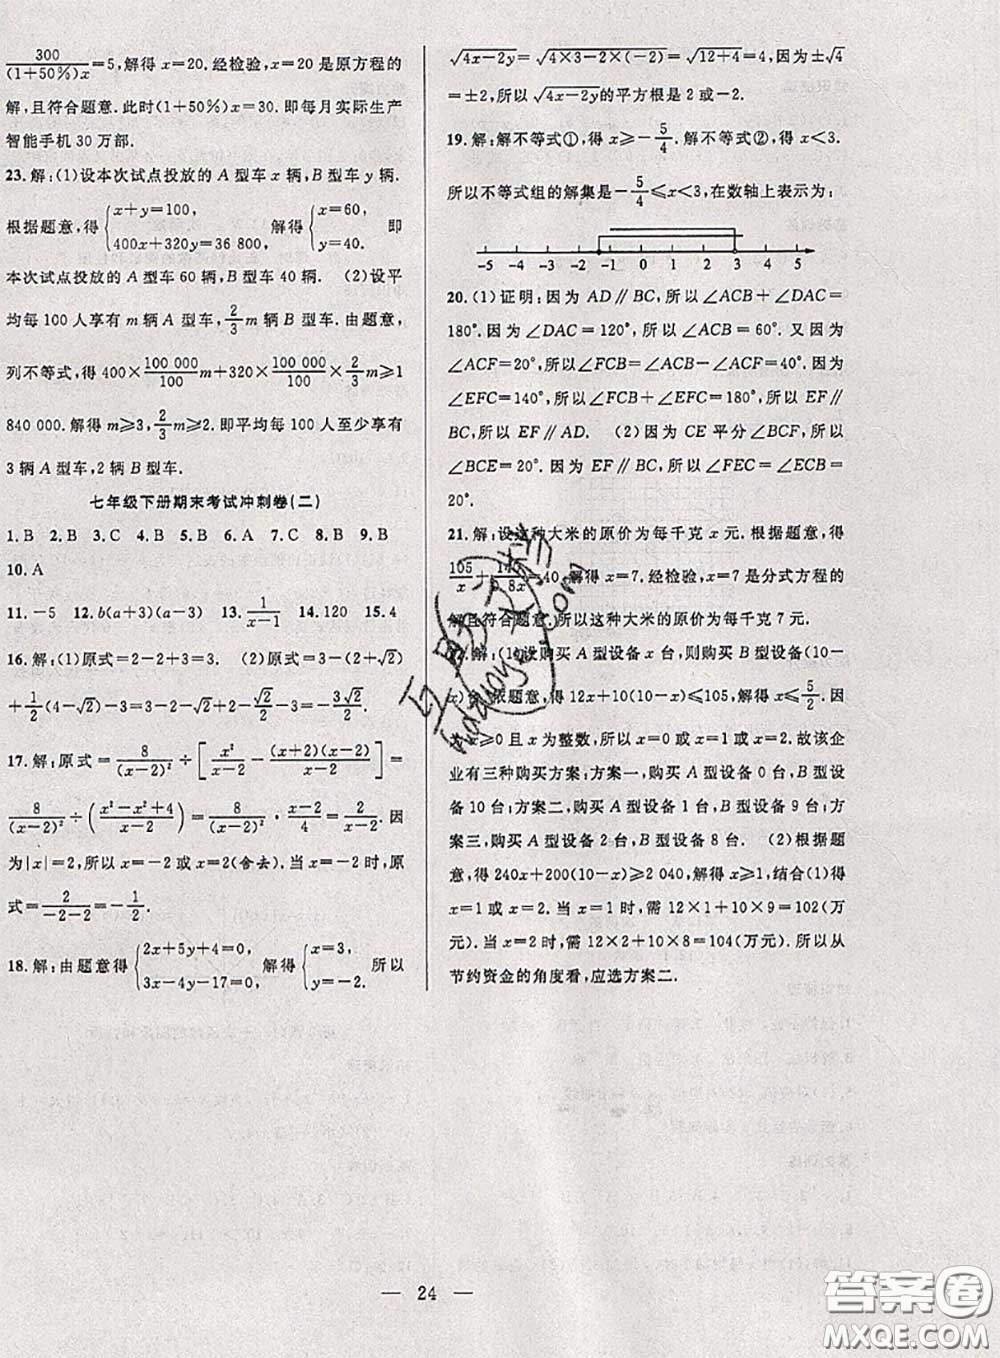 300/(1+50%)x=5,解得 x=20. 经检验,x=20 是原方程的
解,且符合题意. 此时(1+50%)x=30. 即每月实际生产
智能手机 30 万部.
23. 解:(1)设本次试点投放的 A 型车 x 辆,B 型车 y 辆.
根据题意,得{x+y=100, 400x+320y=36 800, 解得{x=60, y=40. 即
本次试点投放的 A 型车 60 辆,B 型车 40 辆. (2)设平
均每 100 人享有 m 辆 A 型车,2/3 m 辆 B 型车. 由题意,
列不等式,得 400×100 000/100 m+320×100 000/100×2/3 m≥1
840 000. 解得 m≥3,2/3 m≥2. 即平均每 100 人至少享有
3 辆 A 型车,2 辆 B 型车.
七年级下册期末考试冲刺卷(二)
1. B 2. B 3. C 4. B 5. B 6. A 7. C 8. B 9. B
10. A
11. -5 12. b(a+3)(a-3) 13. 1/(x-1) 14. 120 15. 4
16. 解:(1)原式=2-2+3=3. (2)原式=3-(2+√2)
+1/2(4-√2)-3=3-2-√2+2-√2/2-3=-3√2/2.
17. 解:原式=8/(x-2)²÷[x²/(x-2)-(x+2)(x-2)/(x-2)]=
8/(x-2)²÷(x²-x²+4)/(x-2)=8/(x-2)²·(x-2)/4=2/(x-2). 因
为|x|=2,所以 x=-2 或 x=2(舍去). 当 x=-2 时,原
式=2/(-2-2)=-1/2.
18. 解:由题意得{2x+5y+4=0, 3x-4y-17=0, 解得{x=3, y=-2. 所以
√(4x-2y)=√(4×3-2×(-2))=√(12+4)=4,因为±√4
=±2,所以√(4x-2y)的平方根是 2 或-2.
19. 解:解不等式①,得 x≥-5/4. 解不等式②,得 x<3.
所以不等式组的解集是-5/4≤x<3,在数轴上表示为:
-5 -4 -3 -2 -1 0 1 2 3 4 5
20. (1)证明:因为 AD∥BC,所以∠ACB+∠DAC=
180°. 因为∠DAC=120°,所以∠ACB=60°. 又因为
∠ACF=20°,所以∠FCB=∠ACB-∠ACF=40°. 因为
∠EFC=140°,所以∠FCB+∠EFC=180°,所以 EF∥
BC,所以 EF∥AD. (2)因为 CE 平分∠BCF,所以
∠BCE=20°. 因为 EF∥BC,所以∠FEC=∠ECB=
20°.
21. 解:设这种大米的原价为每千克 x 元. 根据题意,得
105/x+140/0.8x=40. 解得 x=7. 经检验,x=7 是分式方程的
解且符合题意. 所以这种大米的原价为每千克 7 元.
22. 解:(1)设购买 A 型设备 x 台,则购买 B 型设备(10-
x)台. 依题意,得 12x+10(10-x)≤105,解得 x≤5/2. 因
为 x≥0 且 x 为整数,所以 x=0 或 x=1 或 x=2. 故该企
业有三种购买方案:方案一,购买 A 型设备 0 台,B 型设
备 10 台;方案二,购买 A 型设备 1 台,B 型设备 9 台;方
案三,购买 A 型设备 2 台,B 型设备 8 台. (2)根据题
意,得 240x+200(10-x)≥2 040,解得 x≥1,结合(1)得
x=1 或 x=2. 当 x=1 时,需 12×1+10×9=102(万
元). 当 x=2 时,需 12×2+10×8=104(万元). 所以从
节约资金的角度看,应选方案二.
— 24 —
答案圈
MXQE.COM